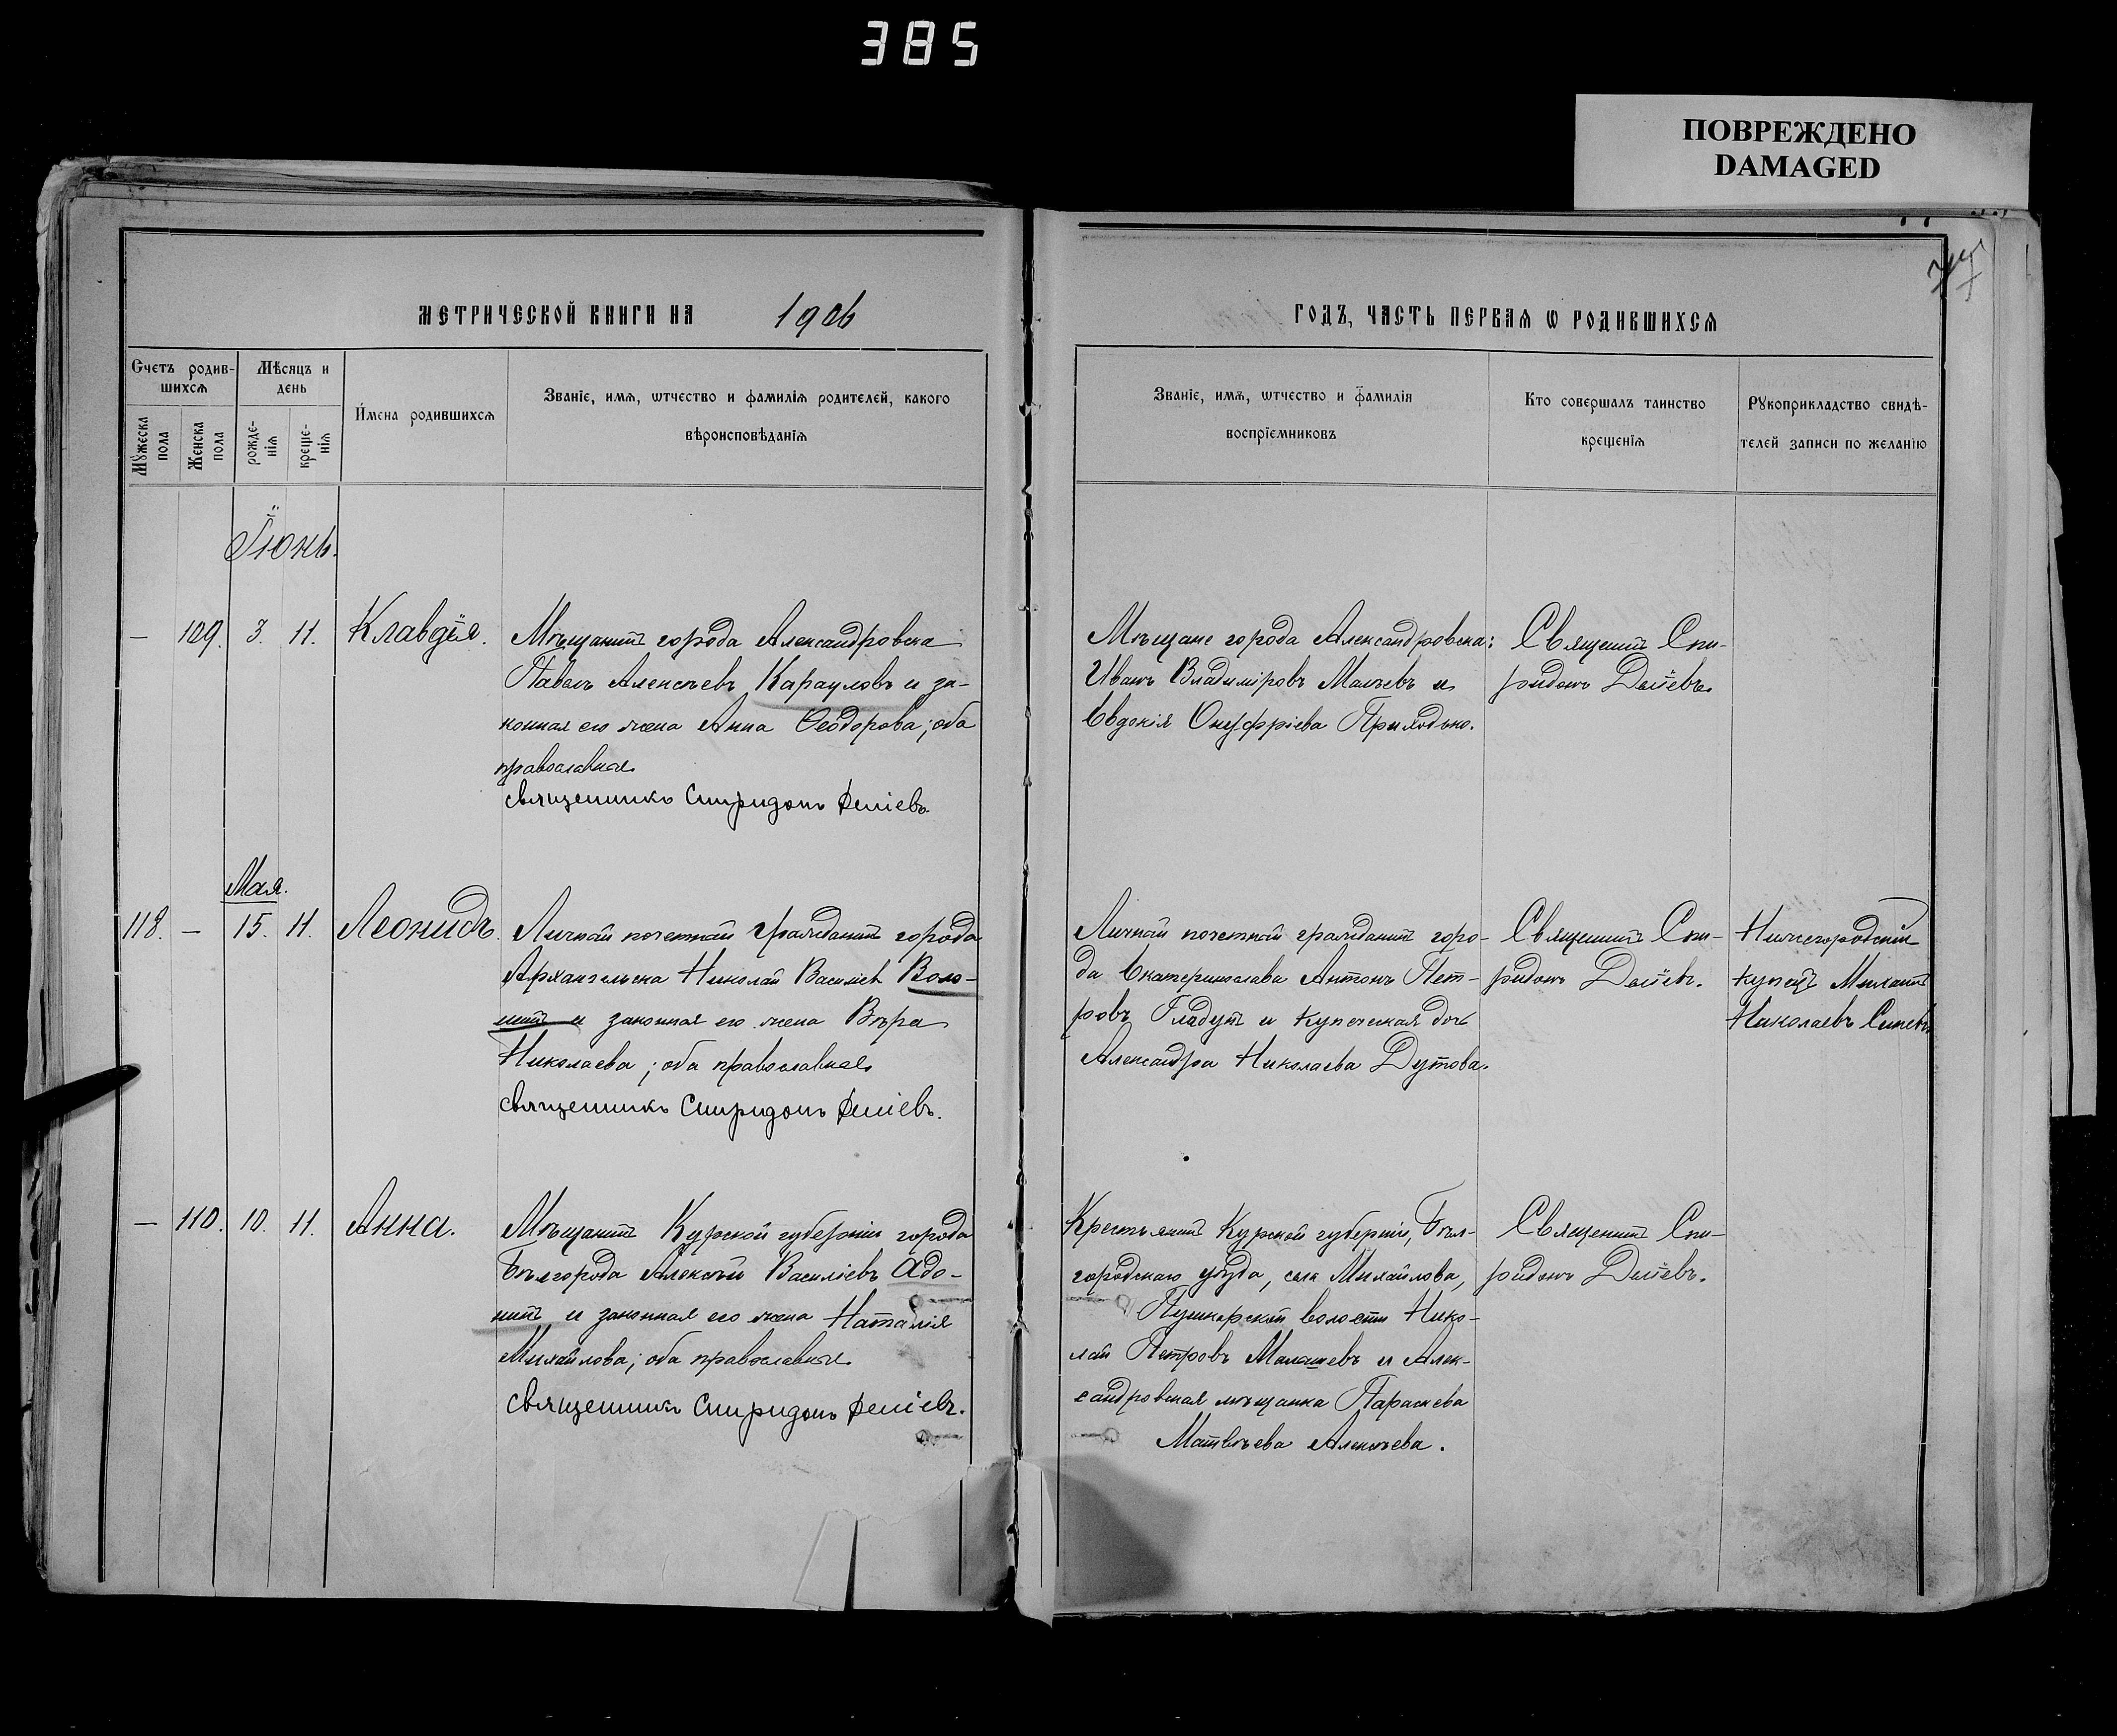 385
ПОВРЕЖДЕНО
DAMAGED
МЕТРИЧЕСКОЙ КНИГИ НА 1906
ГОДЪ, ЧАСТЬ ПЕРВАѦ Ѡ РОДИВШИХСѦ
Счетъ родив-
шихсѧ
Мѣсяцъ и
день
Мꙋжеска
пола
Женска
пола
рожде-
нїѧ
креще-
нїѧ
Имена родившихсѧ
Званїе, имѧ, ѡтчество и фамилїѧ родителей, какого
вѣроисповѣданїѧ
Званїе, имѧ, ѡтчество и фамилїѧ
воспрїемниковъ
Кто совершалъ таинство
крещенїѧ
Рꙋкоприкладство свидѣ-
телей записи по желанїю
Іюнь.
— 109. 3. 11. Клавдія.
Мѣщанинъ города Александровска
Павелъ Алексѣевъ Карауловъ и за-
конная его жена Анна Ѳеодорова; оба
православные
священникъ Спиридонъ
Мѣщане города Александровска:
Иванъ Владиміровъ и
Евдокія Онуфріева Приходько.
Священникъ Спи-
ридонъ
Мая.
118. — 15. 11. Леонидъ.
Личный почетный гражданинъ города
Архангельска Николай Василіевъ Воло-
и законная его жена Вѣра
Николаева; оба православные
священникъ Спиридонъ
Личный почетный гражданинъ горо-
да Екатеринослава Антонъ Пет-
ровъ Гладунъ и купеческая дочь
Александра Николаева Дутова.
Священникъ Спи-
ридонъ
Нижегородскій
купецъ Михаилъ
Николаевъ
— 110. 10. 11. Анна.
Мѣщанинъ Курской губерніи города
Бѣлгорода Алексѣй Василіевъ Адо-
нинъ и законная его жена Наталія
Михайлова; оба православные
священникъ Спиридонъ
Крестьянинъ Курской губерніи, Бѣл-
городскаго уѣзда, села Михайлова,
Пушкарской волости Нико-
лай Петровъ Малашевъ и Алек-
сандровская мѣщанка Параскева
Матвѣева Алексѣева.
Священникъ Спи-
ридонъ